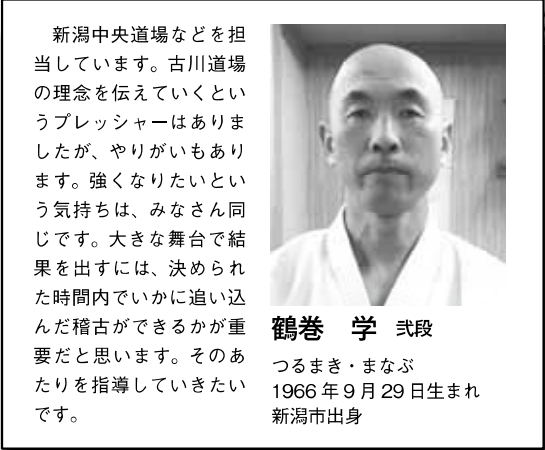 新潟中央道場などを担
当しています。古川道場
の理念を伝えていくとい
うプレッシャーはありま
したが、やりがいもあり
ます。強くなりたいとい
う気持ちは、みなさん同
じです。大きな舞台で結
果を出すには、決められ
た時間内でいかに追い込
んだ稽古ができるかが重
要だと思います。そのあ
たりを指導していきたい
です。
鶴巻　学　弐段
つるまき・まなぶ
1966年9月29日生まれ
新潟市出身